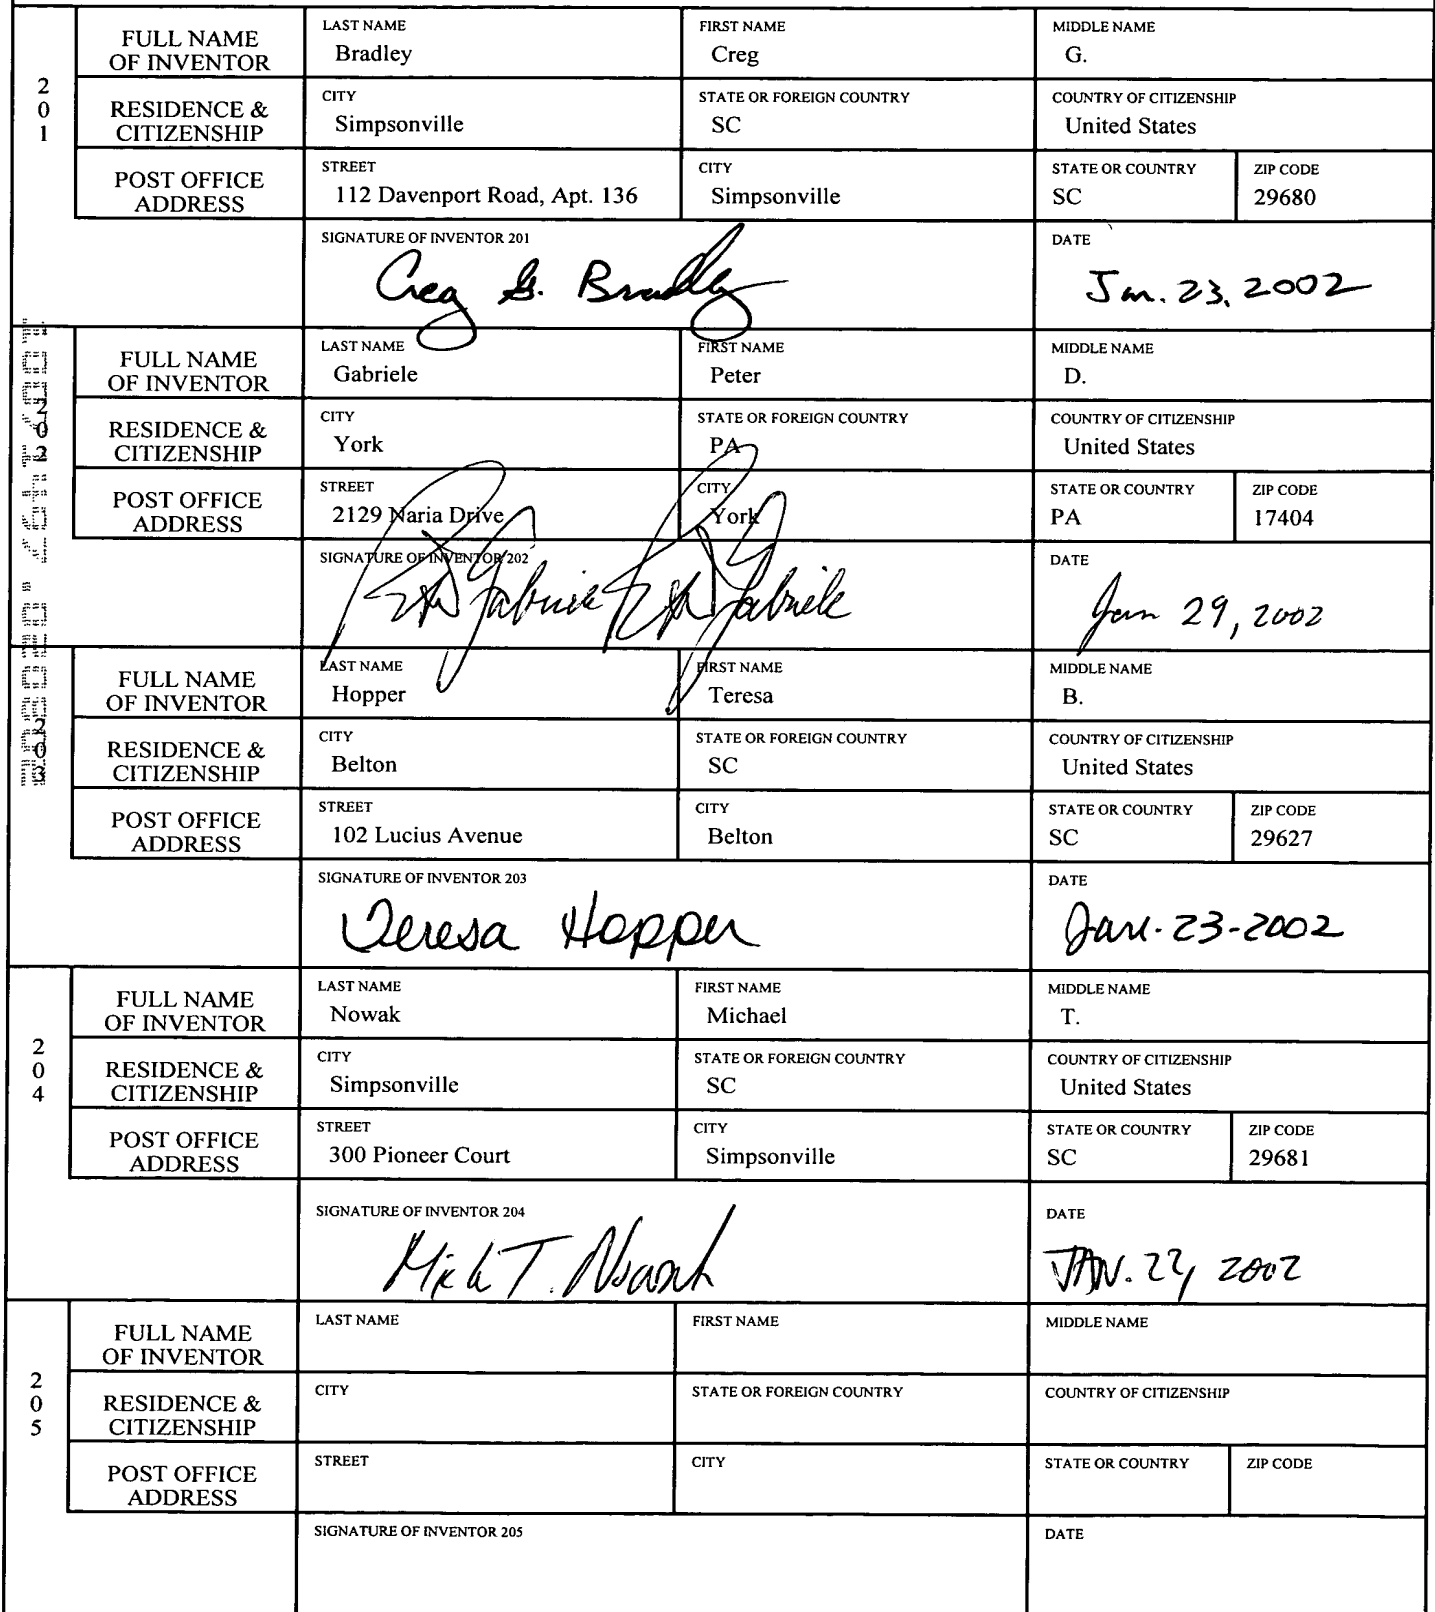 2
0
1
FULL NAME
OF INVENTOR
LAST NAME
Bradley
FIRST NAME
Creg
MIDDLE NAME
G.
RESIDENCE &
CITIZENSHIP
CITY
Simpsonville
STATE OR FOREIGN COUNTRY
SC
COUNTRY OF CITIZENSHIP
United States
POST OFFICE
ADDRESS
STREET
112 Davenport Road, Apt. 136
CITY
Simpsonville
STATE OR COUNTRY
SC
ZIP CODE
29680
SIGNATURE OF INVENTOR 201
Creg G. Bradley
DATE
Jan. 23, 2002
2
0
2
FULL NAME
OF INVENTOR
LAST NAME
Gabriele
FIRST NAME
Peter
MIDDLE NAME
D.
RESIDENCE &
CITIZENSHIP
CITY
York
STATE OR FOREIGN COUNTRY
PA
COUNTRY OF CITIZENSHIP
United States
POST OFFICE
ADDRESS
STREET
2129 Naria Drive
CITY
York
STATE OR COUNTRY
PA
ZIP CODE
17404
SIGNATURE OF INVENTOR 202
DATE
Jan 29, 2002
2
0
3
FULL NAME
OF INVENTOR
LAST NAME
Hopper
FIRST NAME
Teresa
MIDDLE NAME
B.
RESIDENCE &
CITIZENSHIP
CITY
Belton
STATE OR FOREIGN COUNTRY
SC
COUNTRY OF CITIZENSHIP
United States
POST OFFICE
ADDRESS
STREET
102 Lucius Avenue
CITY
Belton
STATE OR COUNTRY
SC
ZIP CODE
29627
SIGNATURE OF INVENTOR 203
Teresa Hopper
DATE
Jan. 23-2002
2
0
4
FULL NAME
OF INVENTOR
LAST NAME
Nowak
FIRST NAME
Michael
MIDDLE NAME
T.
RESIDENCE &
CITIZENSHIP
CITY
Simpsonville
STATE OR FOREIGN COUNTRY
SC
COUNTRY OF CITIZENSHIP
United States
POST OFFICE
ADDRESS
STREET
300 Pioneer Court
CITY
Simpsonville
STATE OR COUNTRY
SC
ZIP CODE
29681
SIGNATURE OF INVENTOR 204
DATE
JAN. 2002
2
0
5
FULL NAME
OF INVENTOR
LAST NAME
FIRST NAME
MIDDLE NAME
RESIDENCE &
CITIZENSHIP
CITY
STATE OR FOREIGN COUNTRY
COUNTRY OF CITIZENSHIP
POST OFFICE
ADDRESS
STREET
CITY
STATE OR COUNTRY
ZIP CODE
SIGNATURE OF INVENTOR 205
DATE